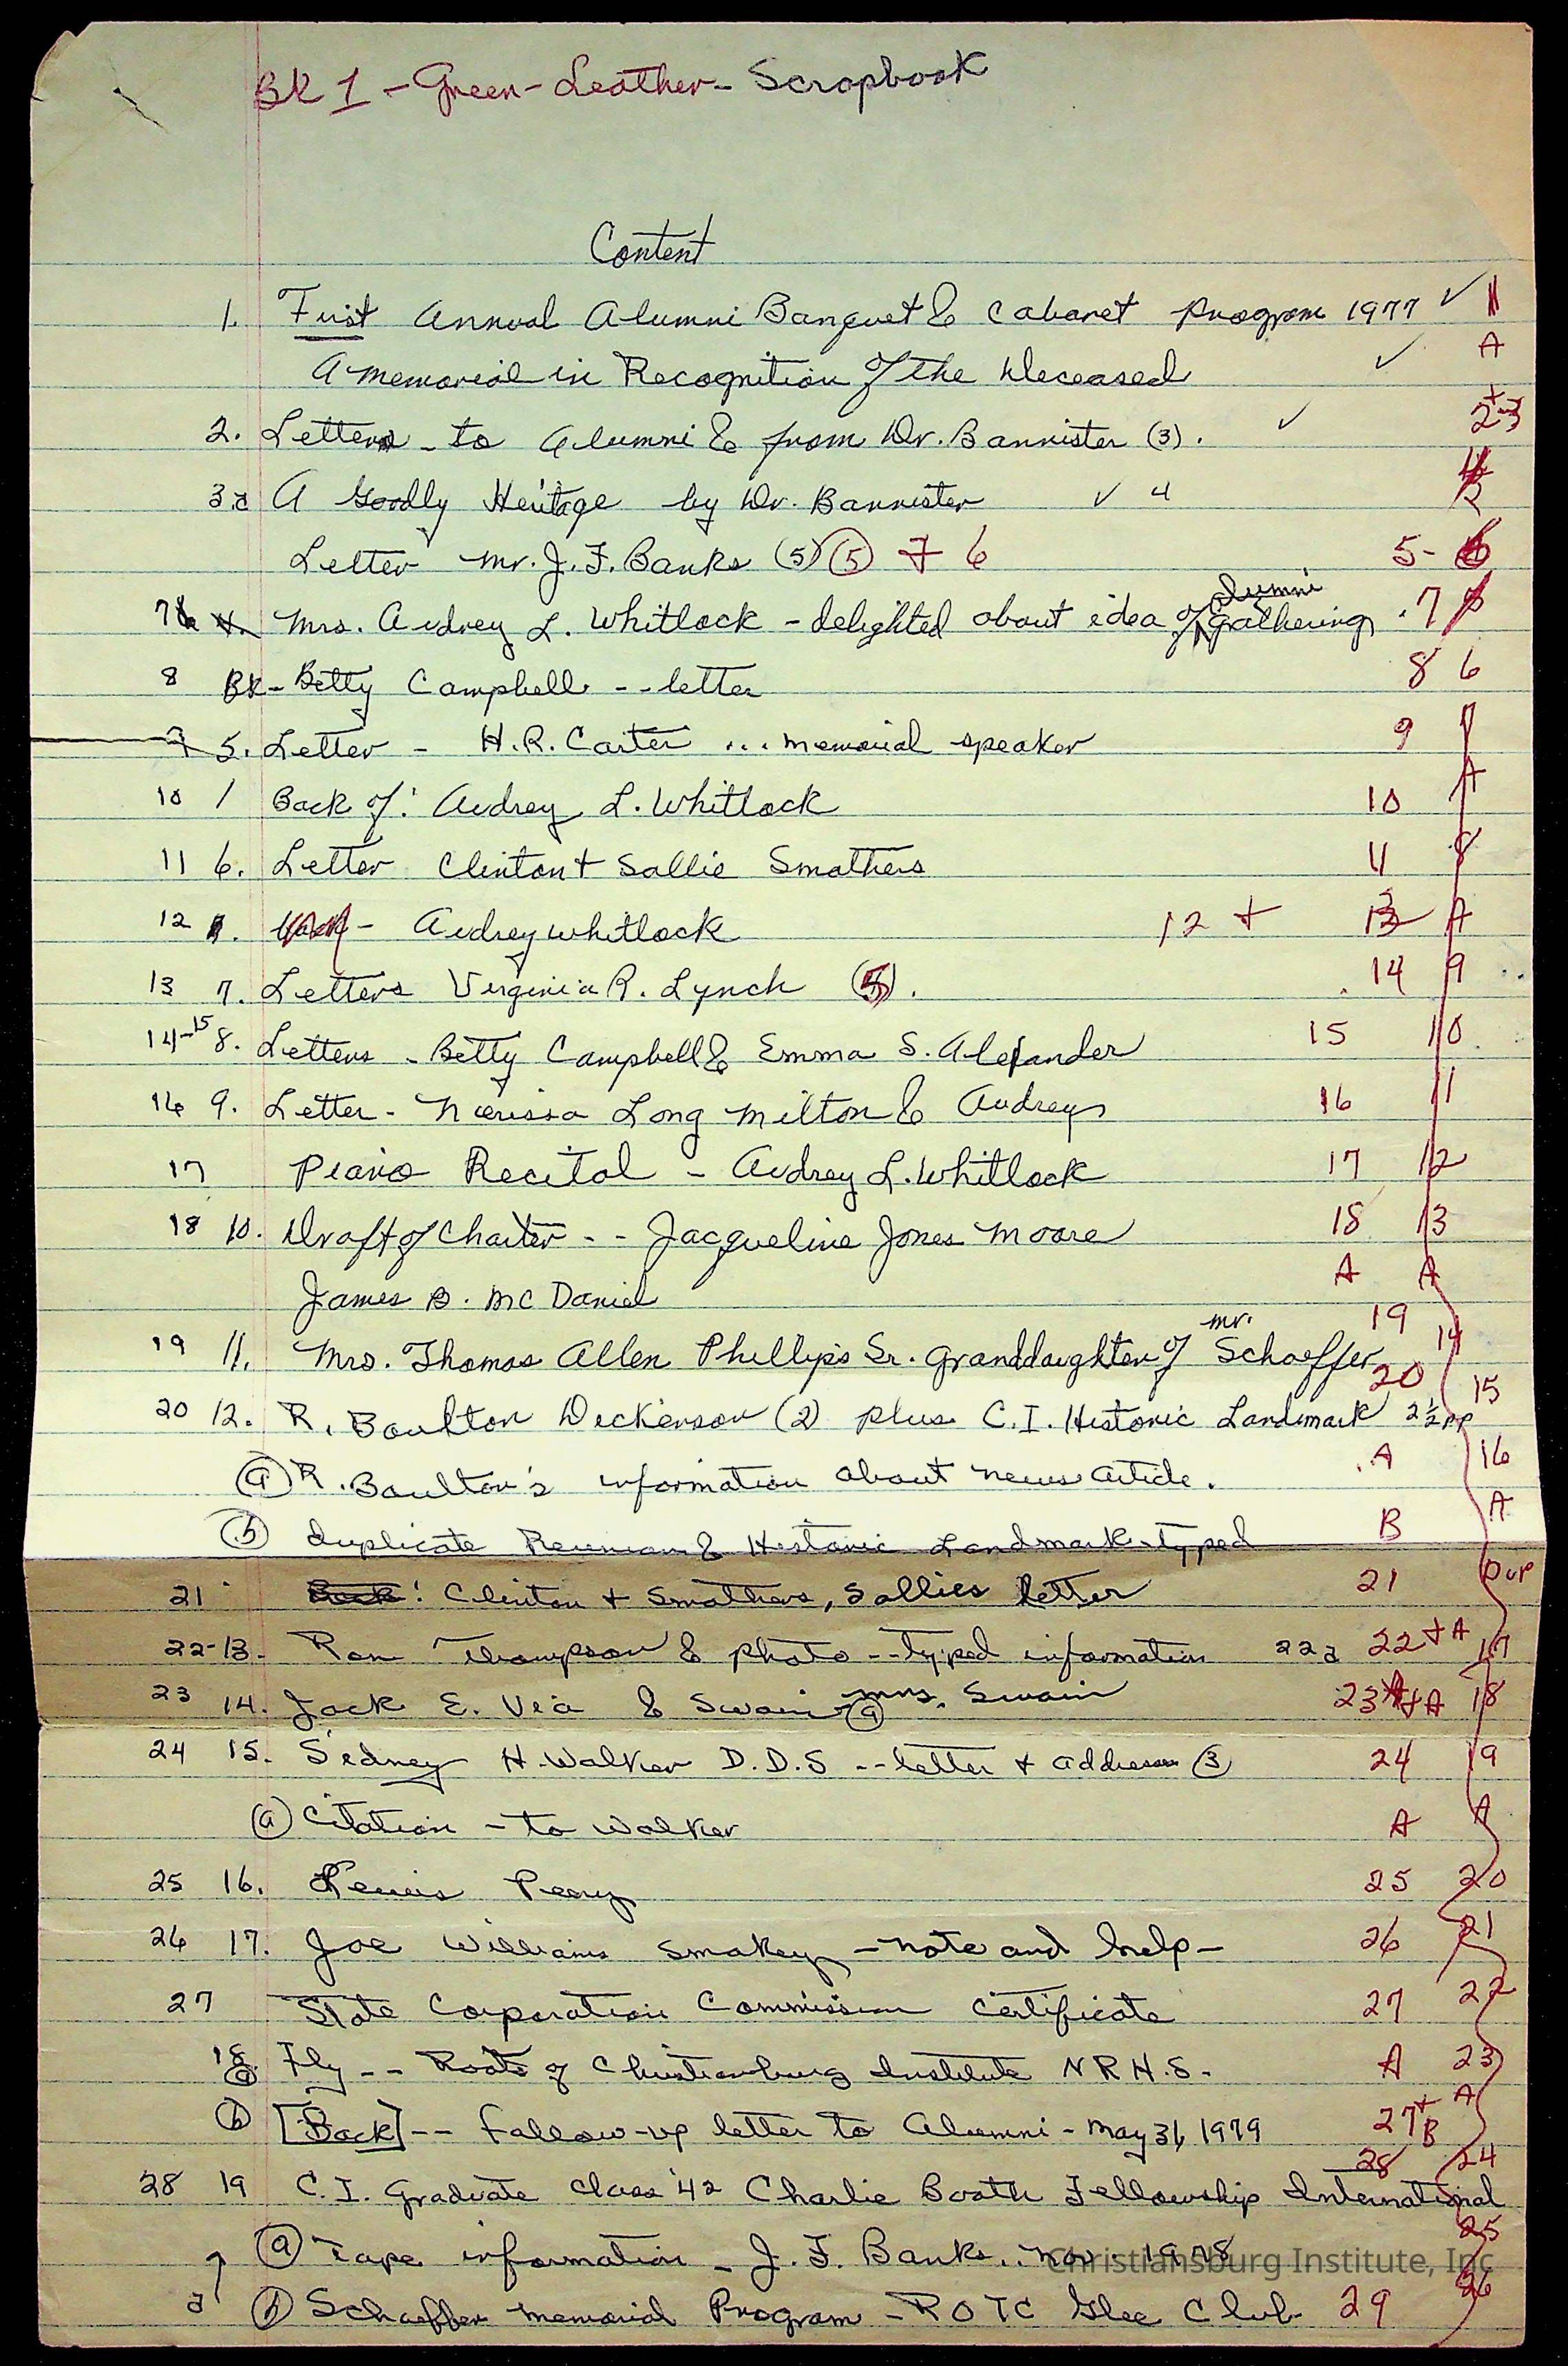 BK 1 - Green-Leather- Scrapbook
Content
1. First Annual Alumni Banquet & Cabaret Program 1977 ✓ 1
A memorial in Recognition of the Deceased ✓ A
2. Letters - to Alumni & from Dr. Bannister (3). ✓ 2+3
3.a A Goodly Heritage by Dr. Bannister ✓ 4
Letter Mr. J. F. Banks (5) (5) + 6 5-6
7 4. Mrs. Audrey L. Whitlock - delighted about idea of alumni gathering. 7
8 BK- Betty Campbell -- letter 8 6
9 5. Letter - H.R. Carter ... memorial speaker 9 7
10 / Back of: Audrey L. Whitlock 10 A
11 6. Letter Clinton + Sallie Smathers 11 8
12 - Audrey Whitlock 12 + 13 A
13 7. Letters Virginia R. Lynch . 14 9
14-15 8. Letters - Betty Campbell & Emma S. Alexander 15 10
16 9. Letter - Nerissa Long Milton & Audrey 16 11
17 Piano Recital - Audrey L. Whitlock 17 12
18 10. Draft of Charter -- Jacqueline Jones Moore 18 13
James B. McDaniel A A
19 11. Mrs. Thomas Allen Phillips Sr. Granddaughter of Mr. Schaeffer 19 14
20 12. R. Boulton Dickerson (2) plus C.I. Historic Landmark 2½ pp 20 15
(a) R. Boulton's information about news article. A 16
(b) duplicate Reunion & Historic Landmark-typed B A
21 Back: Clinton + Smathers, Sallies letter 21 Dup
22-13. Ron Thompson & photo -- typed information 22a 22+A 17
23 14. Jack E. Via & Swain (a) Mrs. Swain 23 +A 18
24 15. Sidney H. Walker D.D.S -- letter + address (3) 24 19
(a) Citation - to Walker A A
25 16. Lewis Peery 25 20
26 17. Joe Williams Smokey - note and help - 26 21
27 State Corporation Commission Certificate 27 22
18. (a) Fly -- Roots of Christiansburg Institute NRHS. A 23
(b) [Back] -- follow-up letter to Alumni - May 31, 1979 27+B A
28 19 C.I. Graduate Class '42 Charlie Booth Fellowship International 28 24
(a) Tape information - J. F. Banks.. Nov. 1978 25
(b) Schaeffer memorial Program - ROTC Glee Club 29 26
Christiansburg Institute, Inc